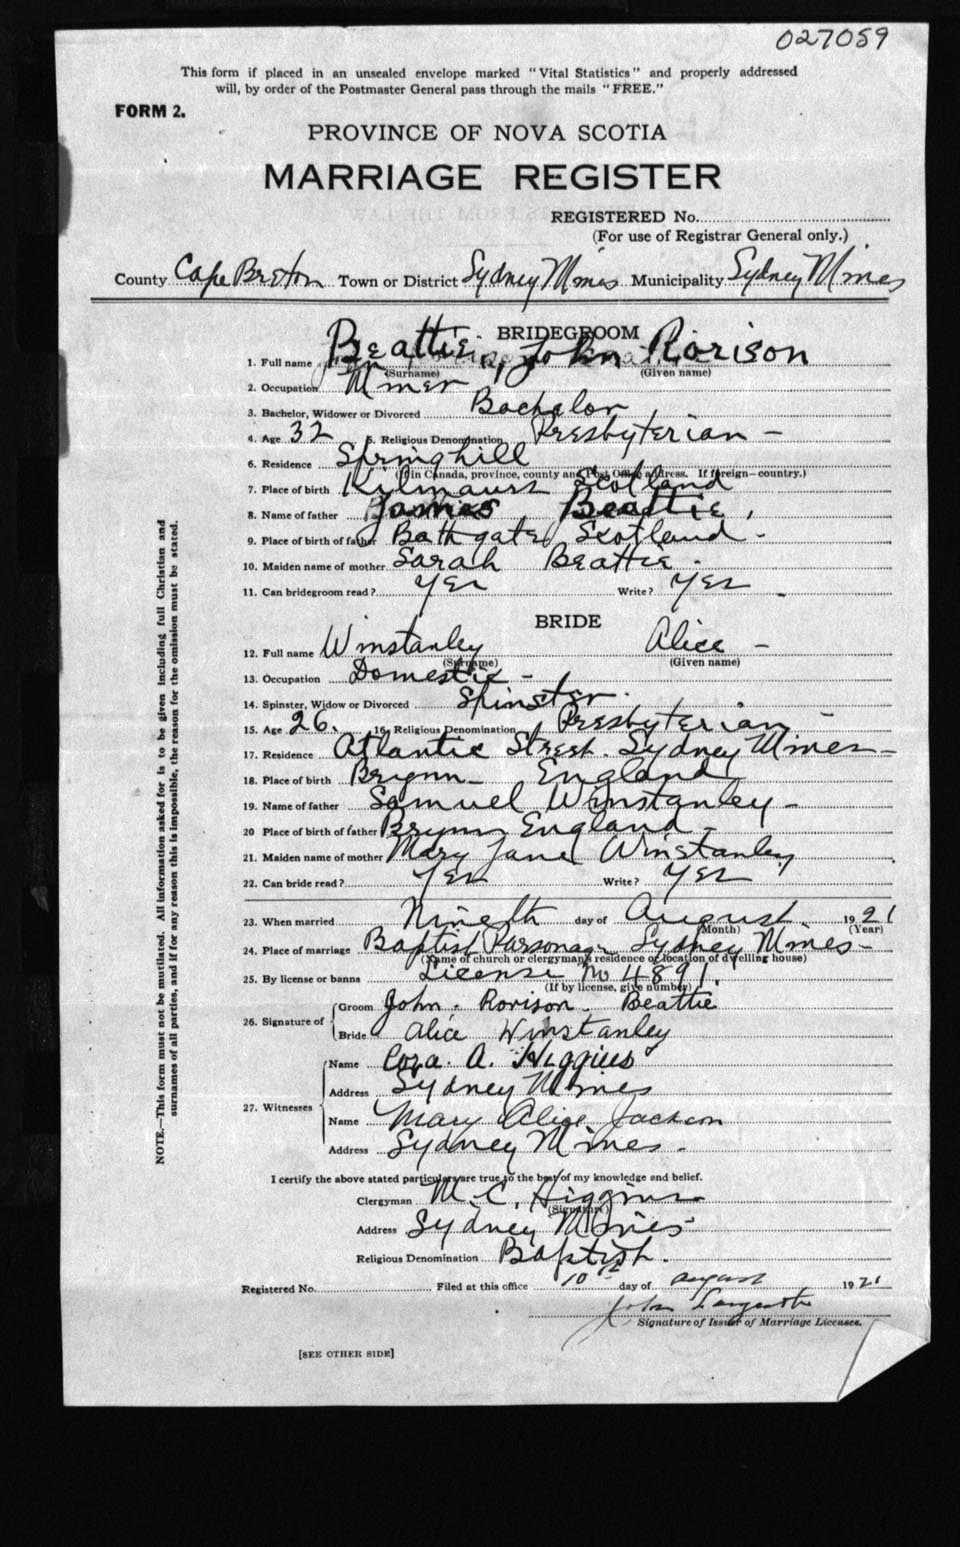 027059
This form if placed in an unsealed envelope marked "Vital Statistics" and properly addressed
will, by order of the Postmaster General pass through the mails "FREE."
FORM 2.
PROVINCE OF NOVA SCOTIA
MARRIAGE REGISTER
REGISTERED No.
(For use of Registrar General only.)
County Cape Breton Town or District Sydney Mines Municipality Sydney Mines
BRIDEGROOM
1. Full name Beattie, John Rorison
(Surname) (Given name)
2. Occupation Miner
3. Bachelor, Widower or Divorced Bachelor
4. Age 32 5. Religious Denomination Presbyterian -
6. Residence Springhill
(If in Canada, province, county and Post Office address. If foreign—country.)
7. Place of birth Kilmaurs Scotland
8. Name of father James Beattie,
9. Place of birth of father Bathgate Scotland -
10. Maiden name of mother Sarah Beattie -
11. Can bridegroom read? Yes Write? Yes -
BRIDE
12. Full name Winstanley Alice -
(Surname) (Given name)
13. Occupation Domestic -
14. Spinster, Widow or Divorced Spinster.
15. Age 26. 16. Religious Denomination Presbyterian -
17. Residence Atlantic Street. Sydney Mines -
18. Place of birth Brynn - England
19. Name of father Samuel Winstanley -
20 Place of birth of father Brynn England -
21. Maiden name of mother Mary Jane Winstanley
22. Can bride read? Yes Write? Yes
23. When married Nineth day of August 1921
(Month) (Year)
24. Place of marriage Baptist Parsonage Sydney Mines -
(Name of church or clergyman's residence or location of dwelling house)
25. By license or banns License No 4891
(If by license, give number)
26. Signature of Groom John. Rorison. Beattie
Bride Alice Winstanley
27. Witnesses Name Cora A. Higgins
Address Sydney Mines
Name Mary Alice Jackson
Address Sydney Mines.
I certify the above stated particulars are true to the best of my knowledge and belief.
Clergyman M. C. Higgins
(Signature)
Address Sydney Mines
Religious Denomination Baptist.
Registered No. Filed at this office 10th day of August 1921
John
Signature of Issuer of Marriage Licenses.
[SEE OTHER SIDE]
NOTE.—This form must not be mutilated. All information asked for is to be given including full Christian and
surnames of all parties, and if for any reason this is impossible, the reason for the omission must be stated.